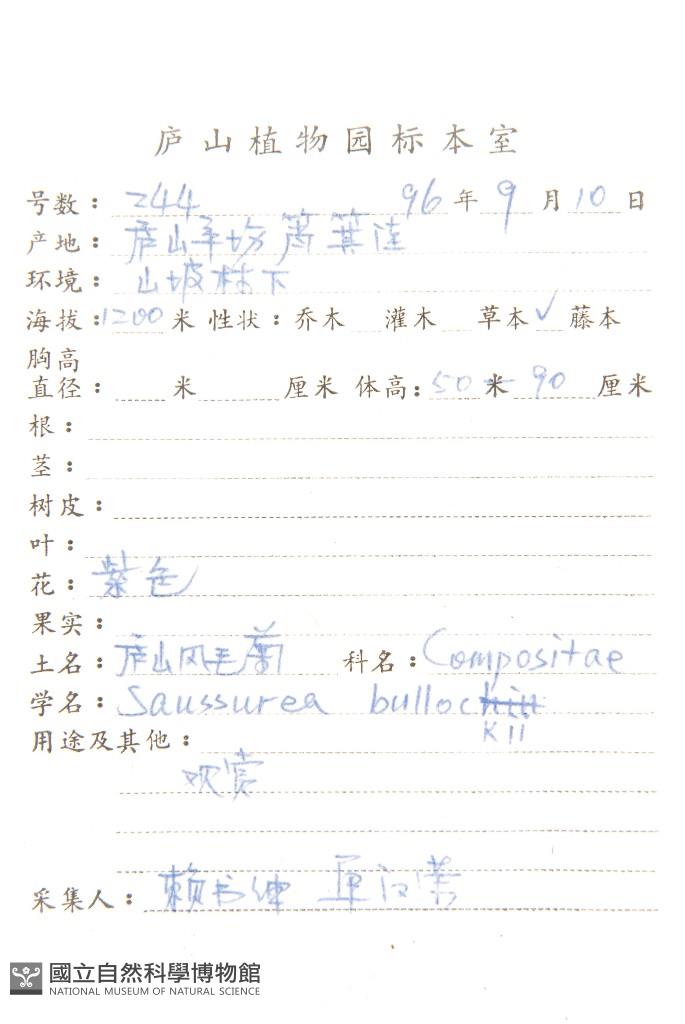 庐山植物园标本室
号数: 244 96年9月10日
产地: 庐山羊场筲箕洼
环境: 山坡林下
海拔: 1200米 性状: 乔木 灌木 草本✓ 藤本
胸高
直径: 米 厘米 体高: 50米-90厘米
根:
茎:
树皮:
叶:
花: 紫色
果实:
土名: 庐山风毛菊 科名: Compositae
学名: Saussurea bullockii
用途及其他:
观赏
采集人: 赖书绅 单汉荣
國立自然科學博物館
NATIONAL MUSEUM OF NATURAL SCIENCE